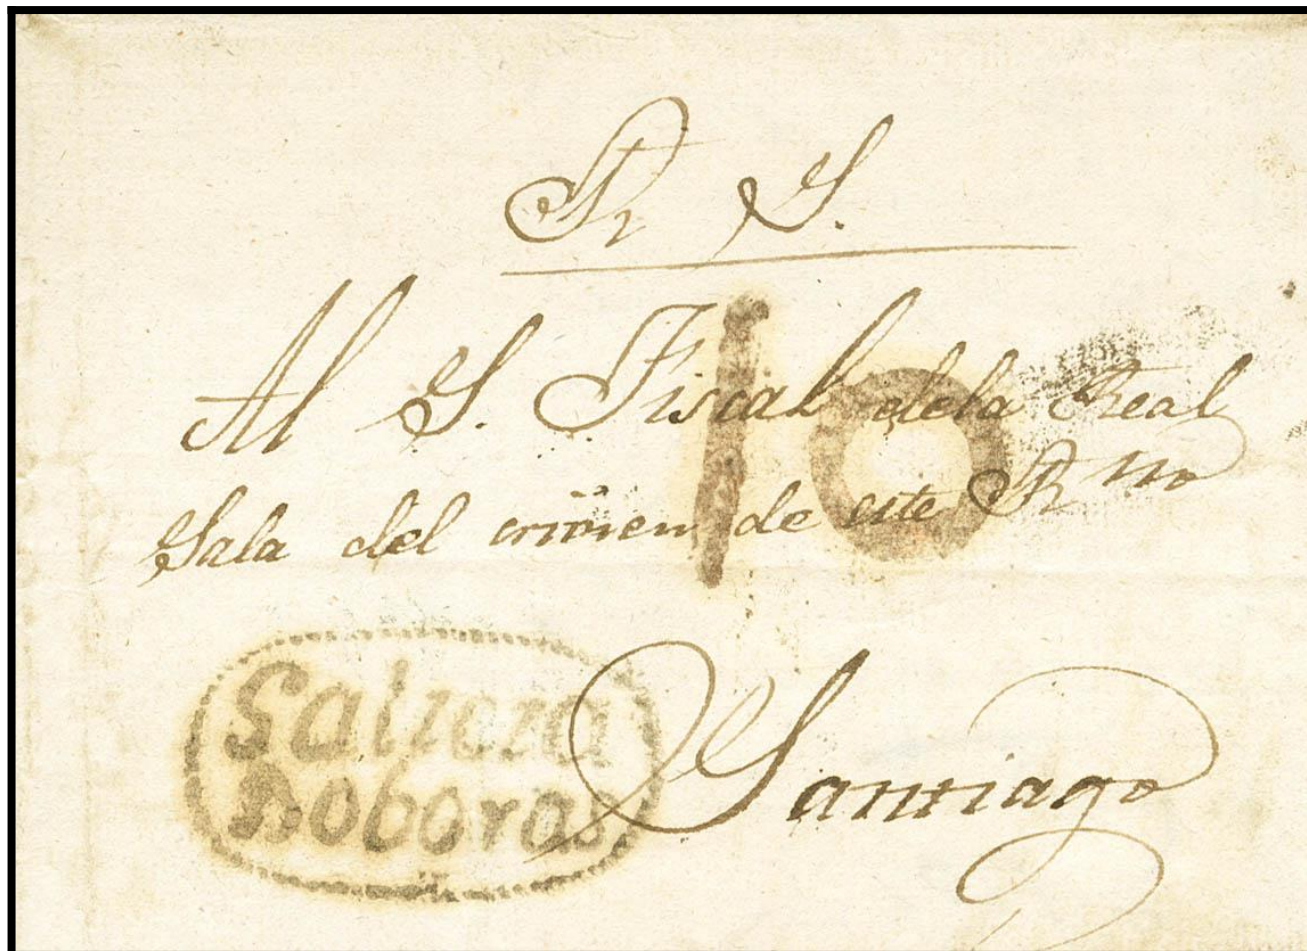 Rl S.
10
Al S. Fiscal dela Real
Sala del crimen de este R.no
Galizia
Boboras
Santiago